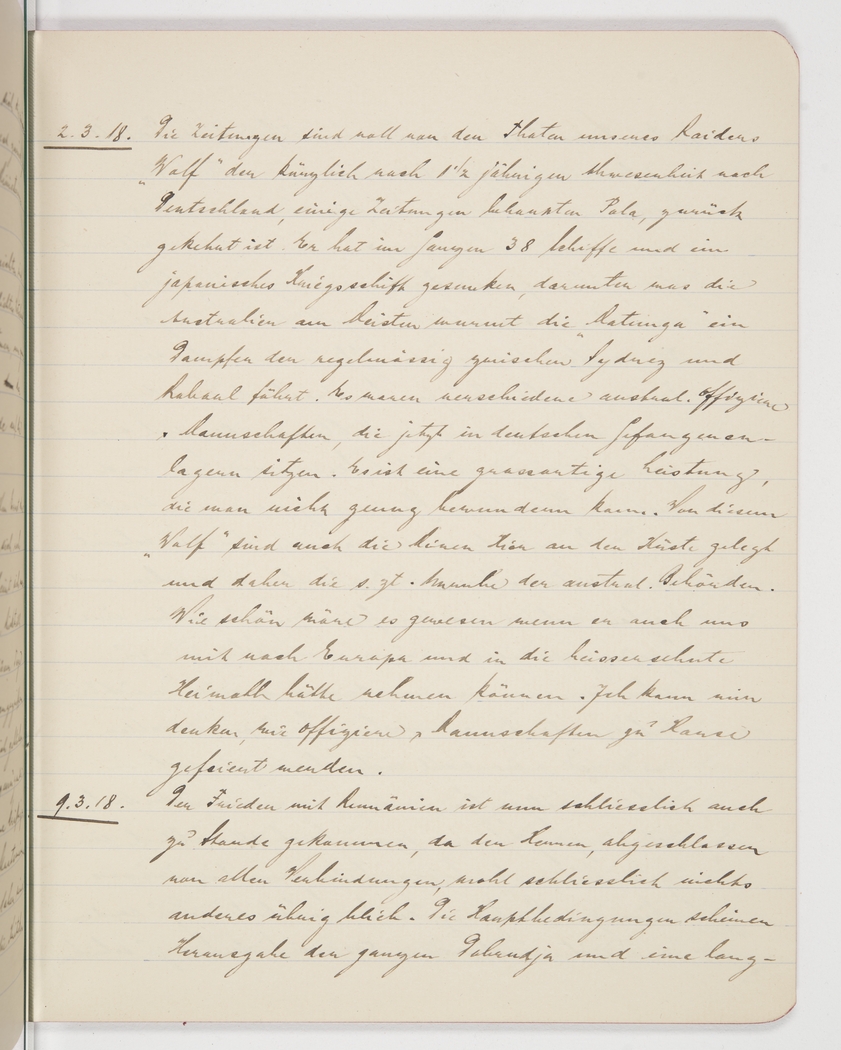 2.3.18. Die Zeitungen sind voll von den Thaten unseres Raiders
„Wolf" der kürzlich nach 1½ jährigen Abwesenheit nach
Deutschland, einige Zeitungen behaupten Pola, zurück
gekehrt ist. Er hat im Ganzen 38 Schiffe und ein
japanisches Kriegsschiff gesunken, darunter was die
Australier am Meisten wurmt die „Matunga" ein
Dampfer der regelmässig zwischen Sydney und
Rabaul fährt. Es waren verschiedene austral. Offiziere
+ Mannschaften, die jetzt in deutschen Gefangenen-
lagern sitzen. Es ist eine grossartige Leistung,
die man nicht genug bewundern kann. Von diesem
„Wolf" sind auch die Minen hier an der Küste gelegt
und daher die s. zt. Unruhe der austral. Behörden.
Wie schön wäre es gewesen wenn er auch uns
mit nach Europa und in die heissersehnte
Heimath hätte nehmen können. Ich kann mir
denken, wie Offiziere + Mannschaften zu Hause
gefeiert werden.
9.3.18. Der Frieden mit Rumänien ist nun schliesslich auch
zu Stande gekommen, da den Herren, abgeschlossen
von allen Verbindungen, wohl schliesslich nichts
anderes übrig blieb. Die Hauptbedingungen scheinen
Herausgabe der ganzen Dobrudja und eine lang-